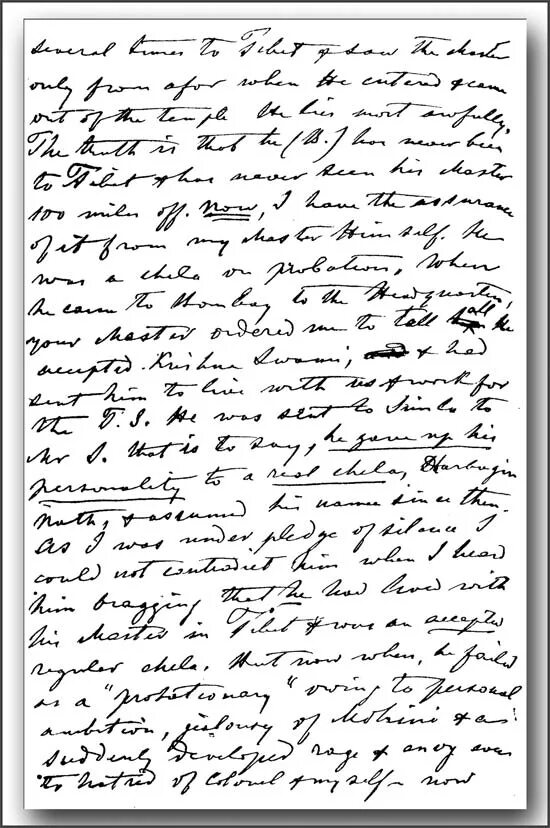 several times to Tibet & saw the Master
only from afor when He entered & came
out of the temple He lies most awfully.
The truth is that he (B.) has never been
to Tibet & has never seen his Master
100 miles off. Now, I have the assurance
of it from my Master Himself. He
was a chela on probation, When
he came to Bombay to the Headquarters,
your Master ordered me to tell all he
accepted Krishna Swami, & had
sent him to live with us & work for
the T.S. He was sent to Simla to
Mr S. that is to say, he gave up his
personality to a real chela, Dharbagiri
Nath, & assumed his name since then.
As I was under pledge of silence I
could not contradict him when I heard
him bragging that he had lived with
his Master in Tibet & was an accepted
regular chela. But now when, he failed
as a "probationary" owing to personal
ambition, jealousy of Mohini & a
suddenly developed rage & envy even
to hatred of Colonel & myself - now